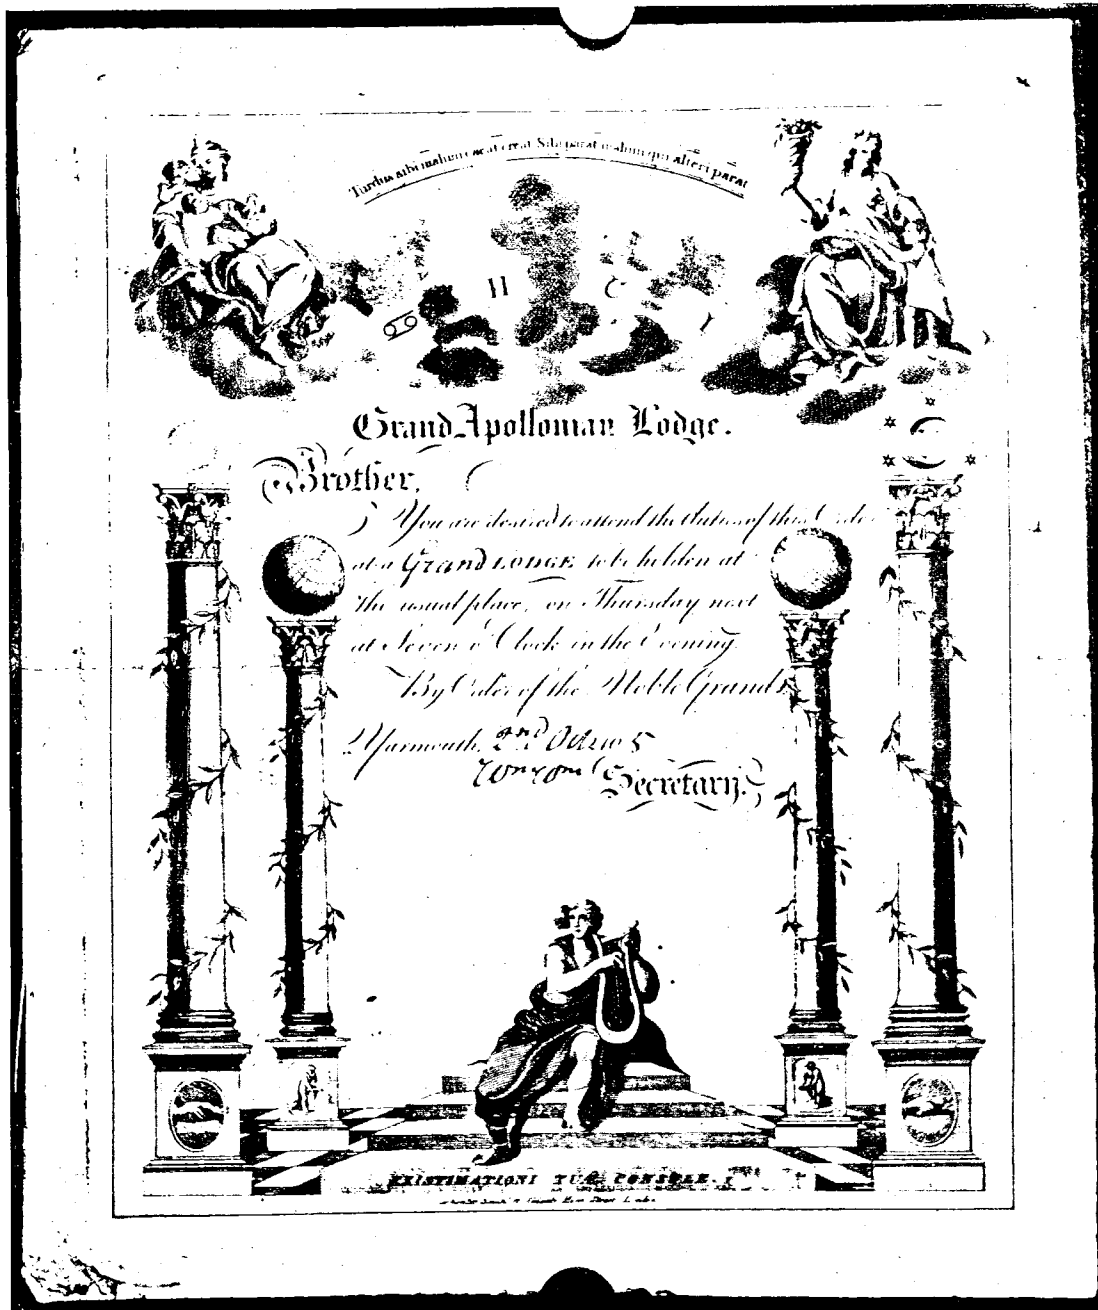 Turdus sibi malum cacat creat Sibi parat malum qui alteri parat
Grand Apollonian Lodge.
Brother,
You are desired to attend the duties of this Order
at a GRAND LODGE to be holden at
the usual place, on Thursday next
at Seven o'Clock in the Evening.
By Order of the Noble Grand
Yarmouth, 2nd Octr
Secretary.
EXISTIMATIONI TUÆ CONSULE.